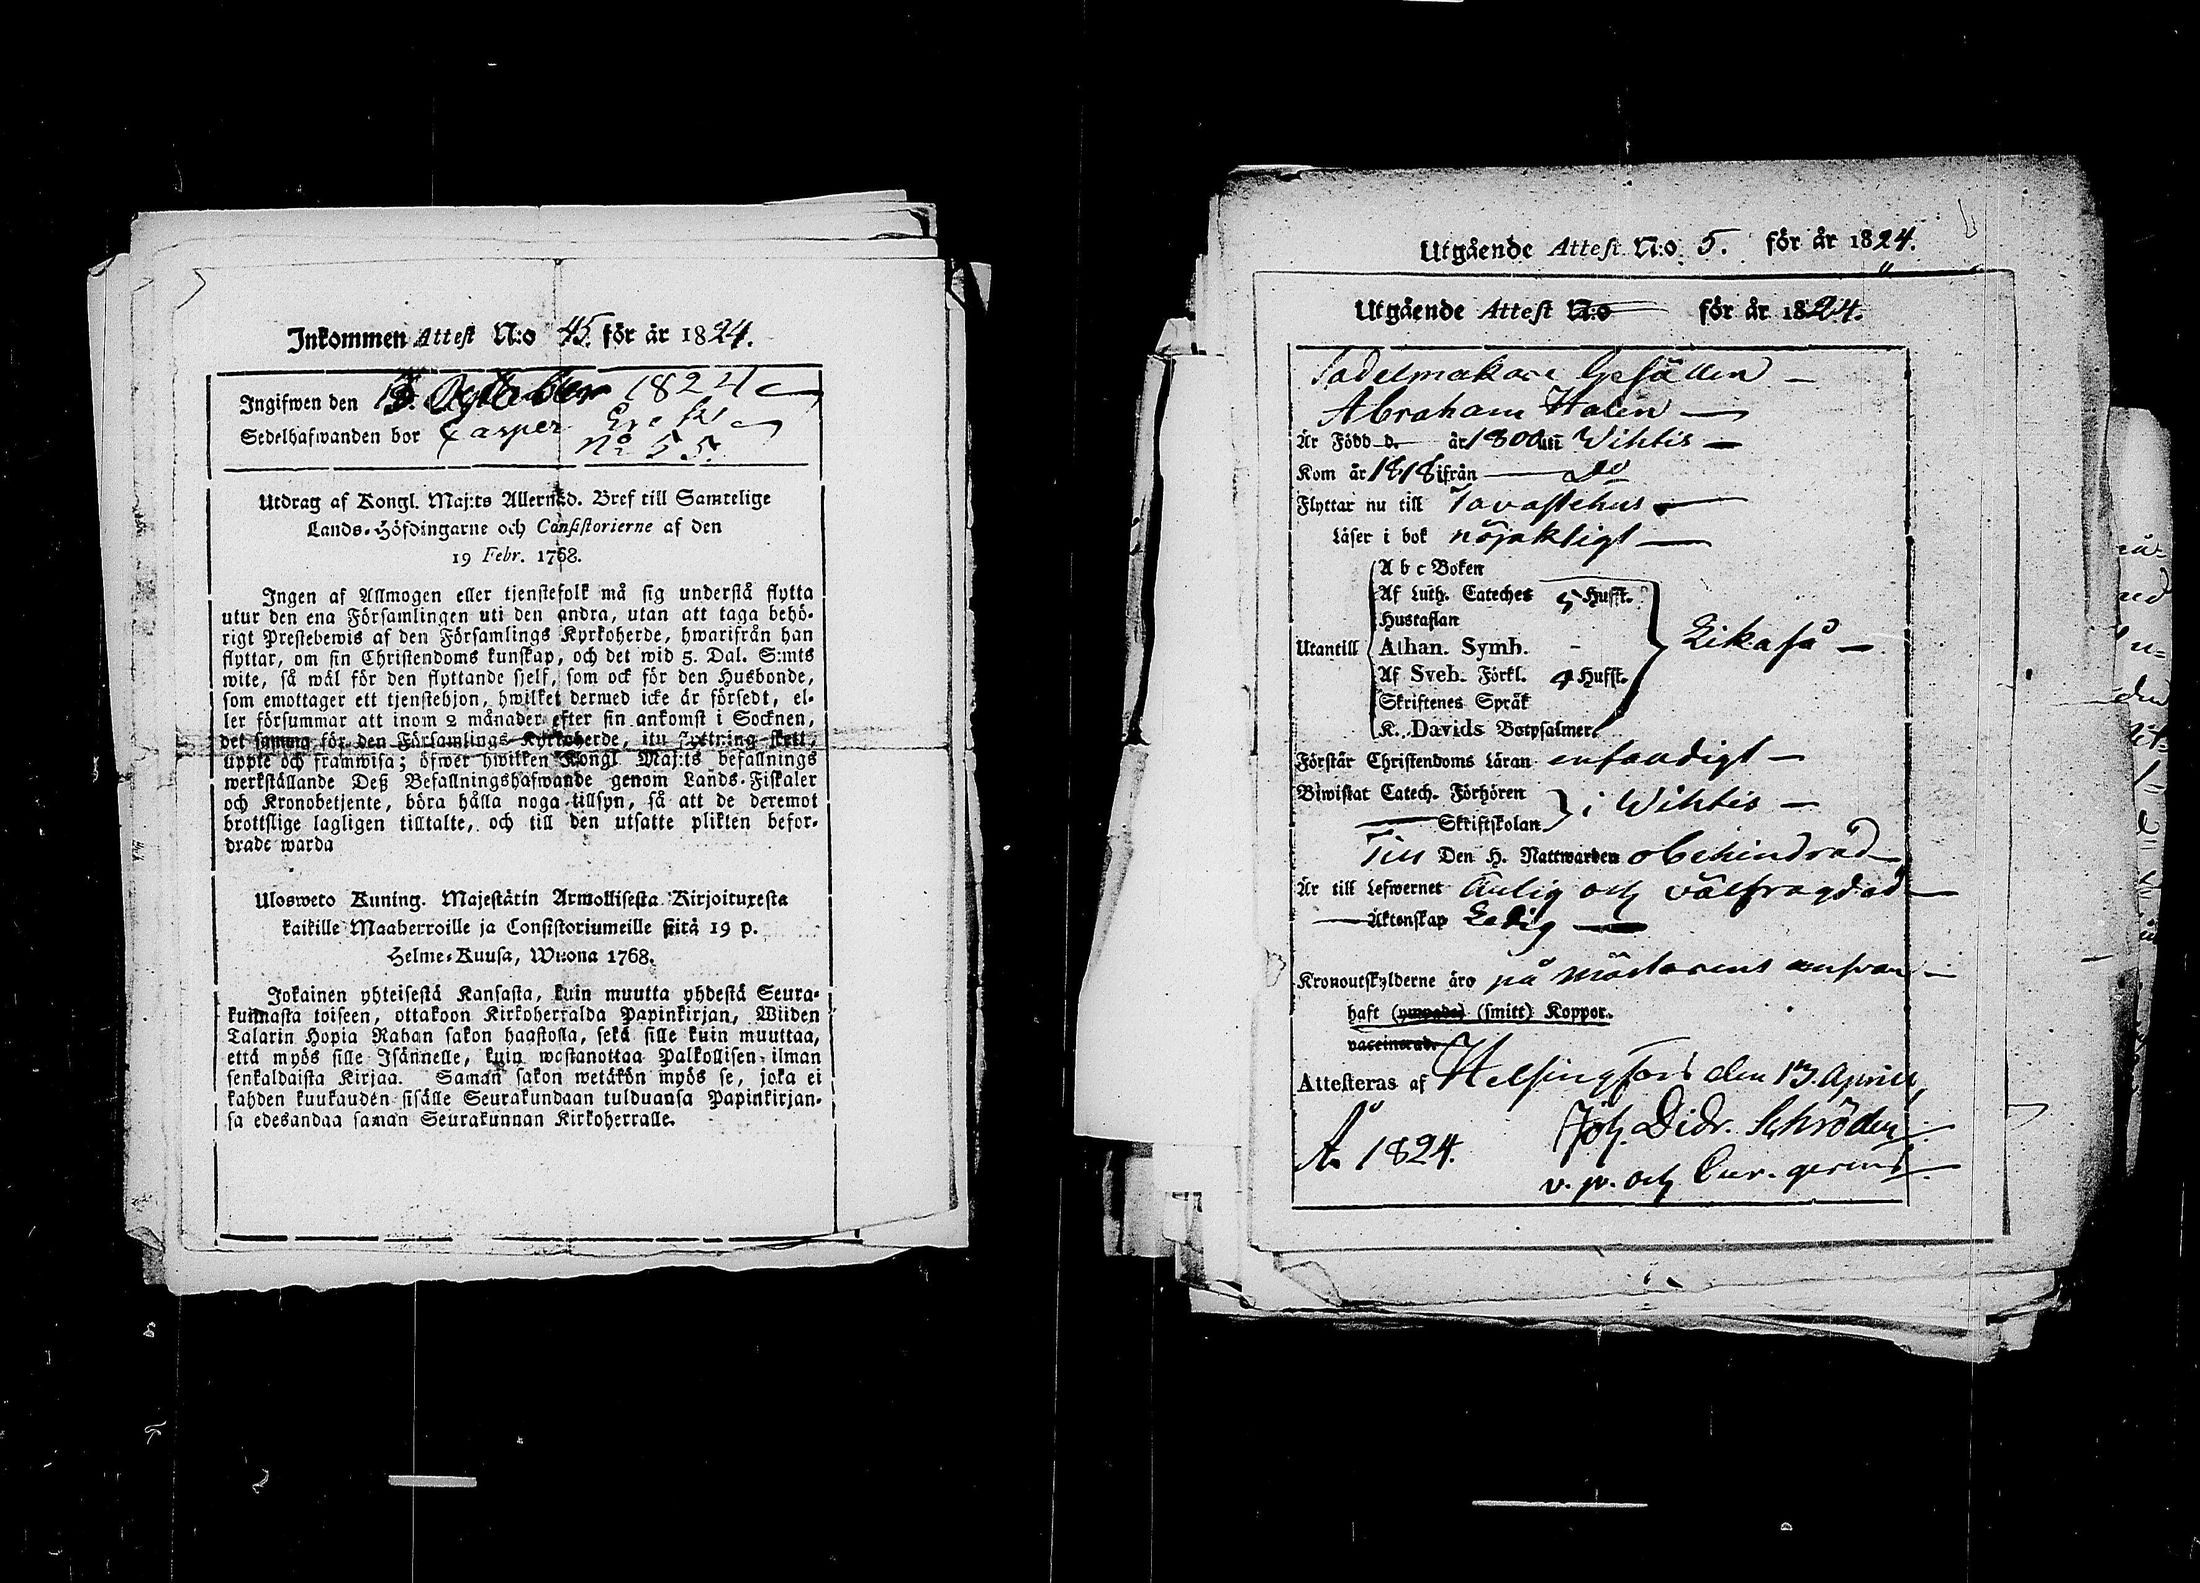 Inkommen Attest N:o 45. för år 1824.
Ingifwen den 13 October 1824
Sedelhafwanden bor Casper
No 55.
Utdrag af Kongl. Maj:ts Allernåd. Bref till Samtelige
Lands-Höfdingarne och Consistorierne af den
19 Febr. 1768.
Ingen af Allmogen eller tjenstefolk må sig understå flytta
utur den ena Församlingen uti den andra, utan att taga behö-
rigt Prestebewis af den Församlings Kyrkoherde, hwarifrån han
flyttar, om sin Christendoms kunskap, och det wid 5. Dal. S:mts
wite, så wäl för den flyttande sjelf, som ock för den Husbonde,
som emottager ett tjenstehjon, hwilket dermed icke är försedt, el-
ler försummar att inom 2 månader efter sin ankomst i Socknen,
det samma för den Församlings Kyrkoherde, itu flyttning skett,
uppte och framwisa; öfwer hwilken Kongl Maj:ts befallnings
werkställande Deß Befallningshafwande genom Lands-Fiskaler
och Kronobetjente, böra hålla noga tillsyn, så att de deremot
brottslige lagligen tilltalte, och till den utsatte plikten befor-
drade warda
Ulosweto Kuning. Majestätin Armollisesta Kirjoituxesta
kaikille Maaherroille ja Consistoriumeille siitä 19 p.
Helme-Kuusa, Wuona 1768.
Jokainen yhteisestä Kansasta, kuin muutta yhdestä Seura-
kunnasta toiseen, ottakoon Kirkoherralda Papinkirjan, Wiiden
Talarin Hopia Rahan sakon haastolla, sekä sille kuin muuttaa,
että myös sille Isännelle, kuin wastanottaa Palkollisen ilman
senkaldaista Kirjaa. Saman sakon wetäkön myös se, joka ei
kahden kuukauden sisälle Seurakundaan tulduansa Papinkirjan-
sa edesandaa saman Seurakunnan Kirkoherralle.
Utgående Attest N:o 5. för år 1824.
Utgående Attest N:o för år 1824.
Sadelmakare Gesällen
Abraham Halen
Är Född d. år 1800 uti Wihtis
Kom år 1818 ifrån Do
Flyttar nu till Tavastehus
Läser i bok nöjaktigt
A b c Boken
Af Luth. Cateches 5 Hufst.
Hustaflan
Utantill Athan. Symb. Lika så
Af Sveb. Förkl. 4 Hufst.
Skriftenes Språk
K. Davids Botpsalmer
Förstår Christendoms Läran enfaldigt
Biwistat Catech. Förhören i Wihtis
Skriftskolan
Till Den H. Nattwarden obehindrad
Är till Lefwernet ärlig och välfrägdad
Äktenskap Ledig
Kronoutskylderne äro på Mästarens answar
haft (ympade) (smitt) Koppor.
vaccinerad.
Attesteras af Helsingfors den 13. Aprill
Åo 1824. Joh. Didr. Schröder
v. p. och Cur. gerens